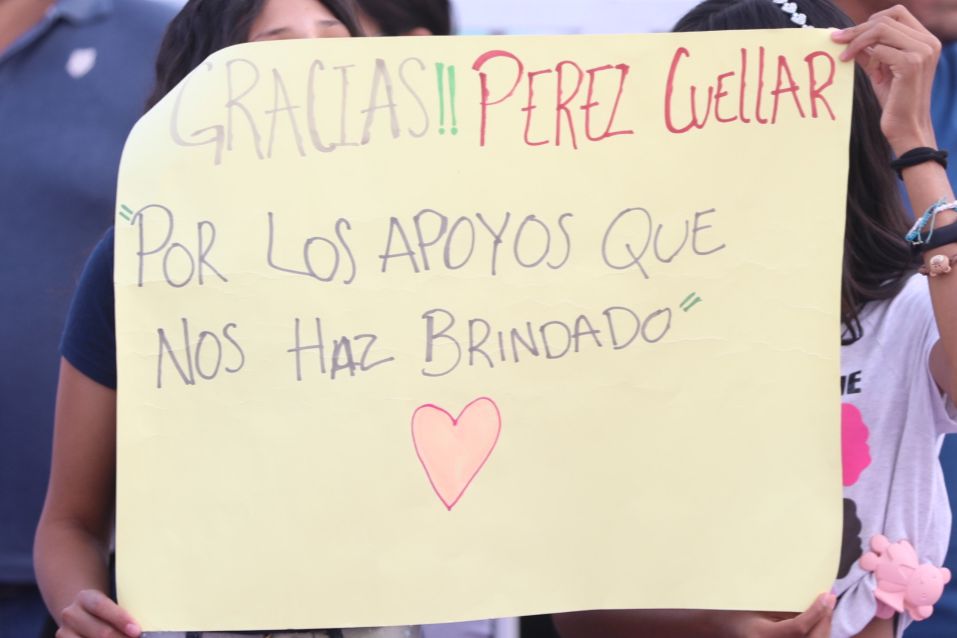 GRACIAS!! PEREZ CUELLAR
"POR LOS APOYOS QUE
NOS HAZ BRINDADO"